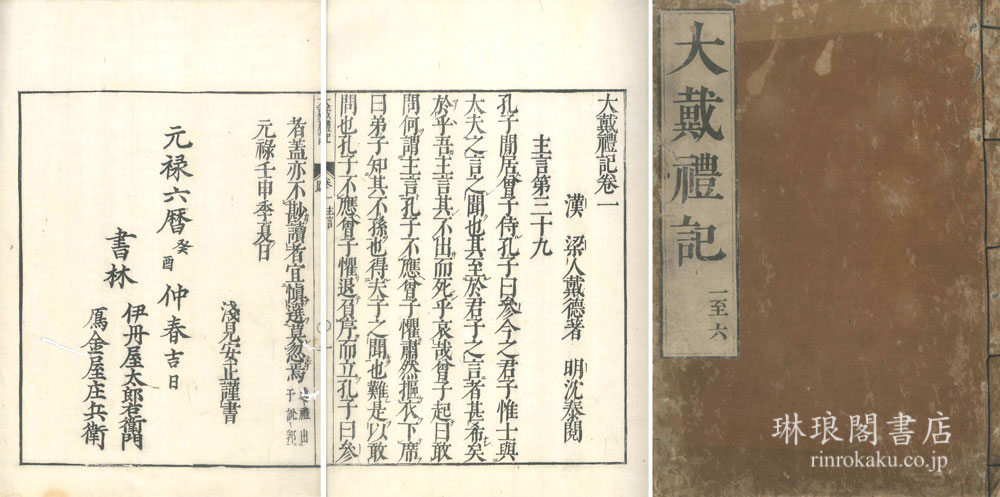 大戴禮記
一至六
大戴禮記卷一
漢 梁人戴德著 明沈泰閱
主言第三十九
孔子閒居曾子侍孔子曰參今之君子惟士與
大夫之言之聞也其至於君子之言者甚希矣
於乎吾主言其不出而死乎哀哉曾子起曰敢
問何謂主言孔子不應曾子懼肅然摳衣下席
曰弟子知其不孫也得夫子之閒也難是以敢
問也孔子不應曾子懼退負序而立孔子曰參
者蓋亦不尠讀者宜慎選莫忽焉
元禄壬申季夏日
淺見安正謹書
元禄六暦癸酉仲春吉日
書林
伊丹屋太郎右衛門
金屋庄兵衛
琳琅閣書店
rinrokaku.co.jp